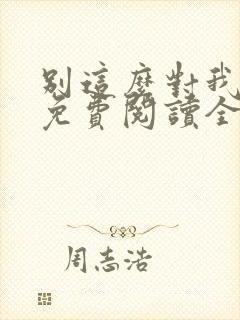 別這麼對我
免費閱讀全
周志浩